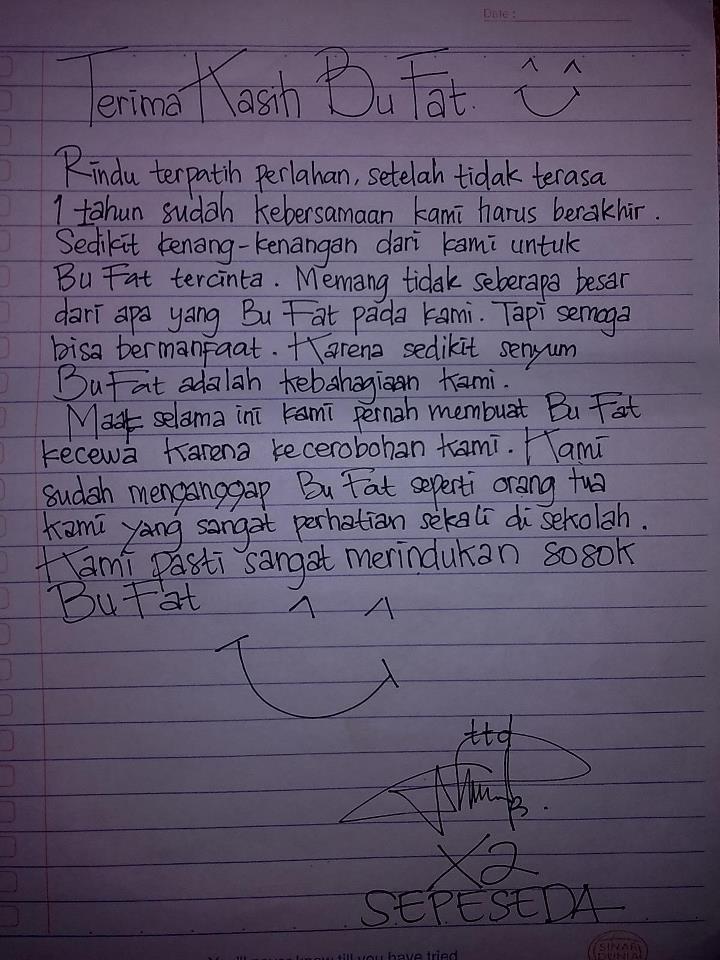 Date :
Terima Kasih Bu Fat.
Rindu terpatih perlahan, setelah tidak terasa
1 tahun sudah kebersamaan kami harus berakhir.
Sedikit kenang-kenangan dari kami untuk
Bu Fat tercinta. Memang tidak seberapa besar
dari apa yang Bu Fat pada kami. Tapi semoga
bisa bermanfaat. Karena sedikit senyum
Bu Fat adalah kebahagiaan kami.
Maaf selama ini kami pernah membuat Bu Fat
kecewa karena kecerobohan kami. Kami
sudah menganggap Bu Fat seperti orang tua
kami yang sangat perhatian sekali di sekolah.
Kami pasti sangat merindukan sosok
Bu Fat
ttd
X2
SEPESEDA
You'll never know till you have tried
SINAR
DUNIA